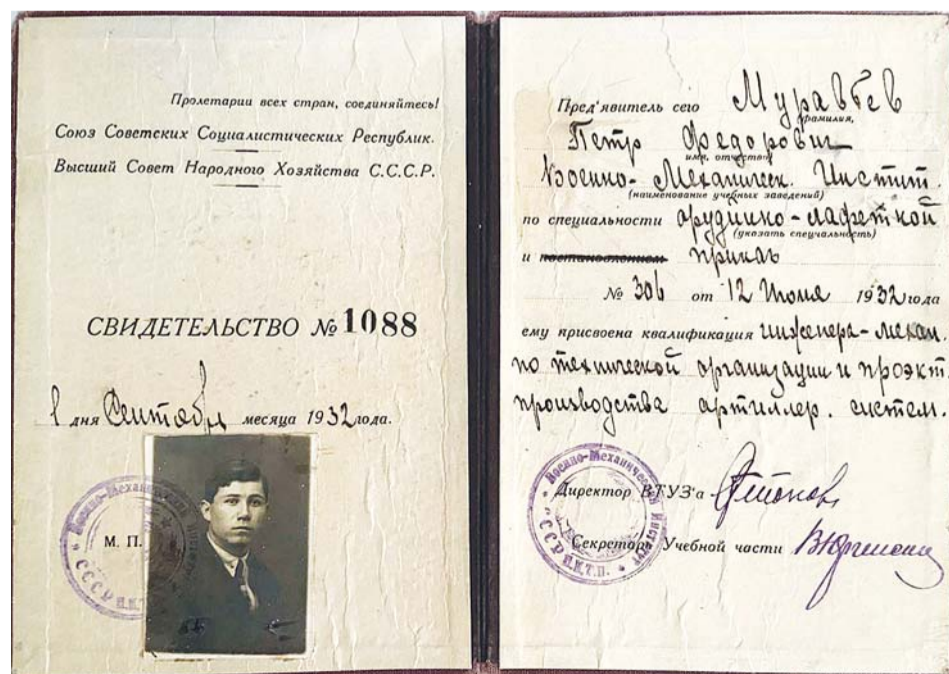 Пролетарии всех стран, соединяйтесь!
Союз Советских Социалистических Республик.
Высший Совет Народного Хозяйства С.С.С.Р.
СВИДЕТЕЛЬСТВО № 1088
1 дня Сентября месяца 1932 года.
М. П.
Военно-Механический Институт
СССР Н.К.Т.П.
Пред'явитель сего Муравьев
фамилия,
Петр Федорович
имя, отчество
Военно-Механическ. Инстит.
(наименование учебных заведений)
по специальности орудийно-лафетной
(указать специальность)
и постановлением приказ
№ 306 от 12 Июля 1932 года
ему присвоена квалификация инженера-механ.
по технической организации и проэкт.
производства артиллер. систем.
Военно-Механический Институт
СССР Н.К.Т.П.
Директор ВТУЗ'а
Секретарь Учебной части